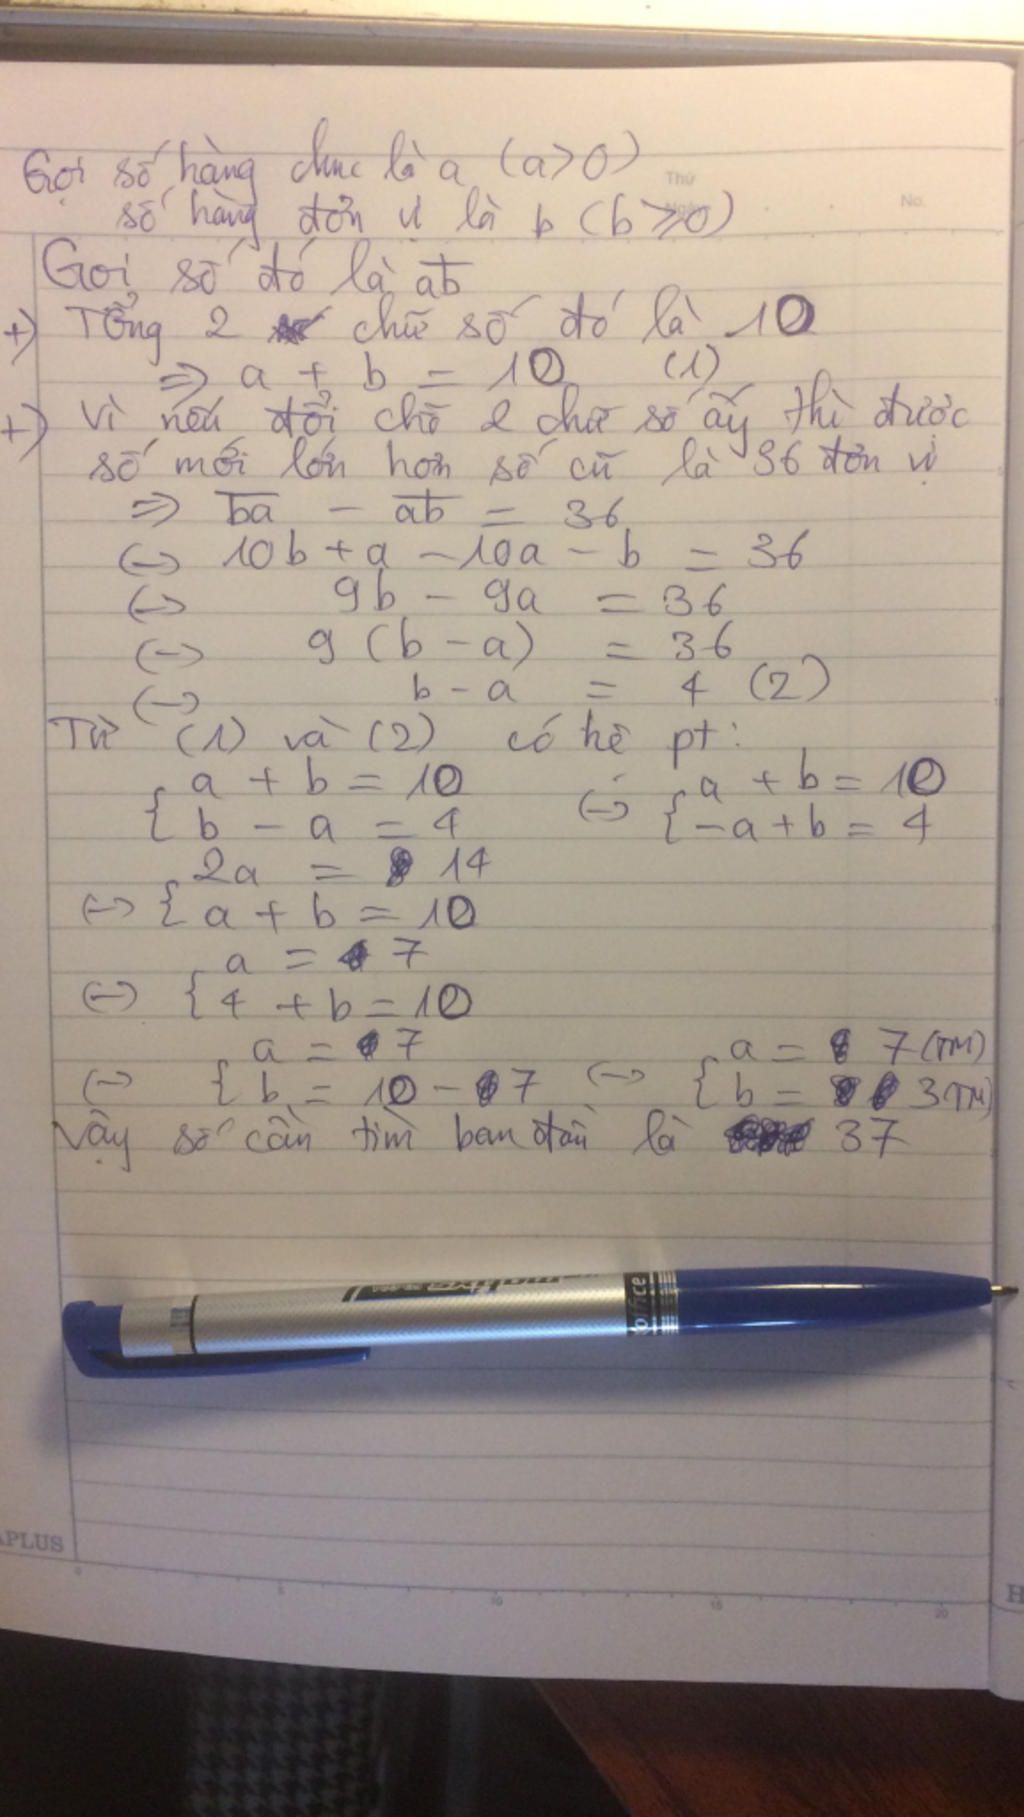 Gọi số hàng chục là a (a>0)
Thứ
số hàng đơn vị là b (b ≥ 0)
Ngày
No.
Gọi số đó là ab
+) Tổng 2 chữ số đó là 10
=> a + b = 10 (1)
+) Vì nếu đổi chỗ 2 chữ số ấy thì được
số mới lớn hơn số cũ là 36 đơn vị
=> ba - ab = 36
<-> 10b + a - 10a - b = 36
<-> 9b - 9a = 36
<-> 9 (b - a) = 36
<-> b - a = 4 (2)
Từ (1) và (2) có hệ pt:
{ a + b = 10 <-> { a + b = 10
b - a = 4 -a + b = 4
2a = 14
<-> { a + b = 10
a = 7
<-> { 4 + b = 10
a = 7 a = 7 (TM)
<-> { b = 10 - 7 <-> { b = 3 TM)
Vậy số cần tìm ban đầu là 37
office
APLUS
0 5 10 15 20
H